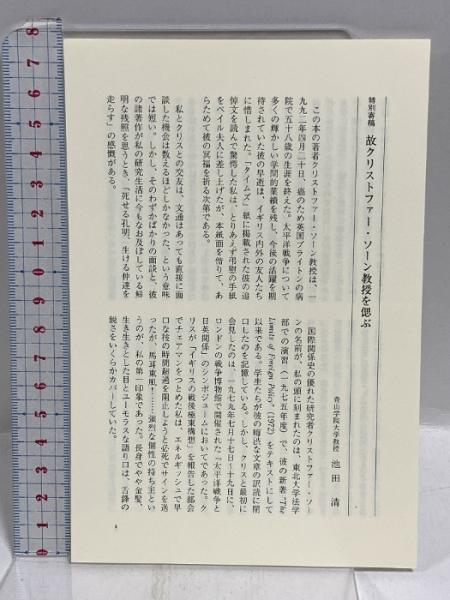 特別寄稿
故クリストファー・ソーン教授を偲ぶ
青山学院大学教授 池田 清
この本の著者クリストファー・ソーン教授は、一
九九二年四月二十日、癌のため英国ブライトンの病
院で五十八歳の生涯を終えた。太平洋戦争について
多くの輝かしい学問的業績を残し、今後の活躍を期
待されていた彼の早逝は、イギリス内外の友人たち
に惜しまれた。『タイムズ』紙に掲載された彼の追
悼文を読んで驚愕した私は、とりあえず弔慰の手紙
をベイル夫人に差し上げたが、本紙面を借りて、あ
らためて彼の冥福を祈る次第である。
私とクリスとの交友は、文通はあっても直接に面
談した機会は数えるほどしかなかった、という意味
では短い。しかし、そのわずかばかりの面談と、彼
の諸著作が私の研究生活に今もなお及ぼしている鮮
明な残照を思うとき、「死せる孔明、生ける仲達を
走らす」の感慨がある。
国際関係史の優れた研究者クリストファー・ソー
ンの名前が、私の頭に刻まれたのは、東北大学法学
部での演習（一九七五年度）で、彼の新著 "The
Limits of Foreign Policy" (1972) をテキストにして
以来である。学生たちが彼の晦渋な文章の訳読に閉
口したのを記憶している。しかし、クリスと最初に
会見したのは、一九七九年七月十七日～十九日に、
ロンドンの戦争博物館で開催された「太平洋戦争と
日英関係」のシンポジュームにおいてであった。ク
リスが「イギリスの戦後極東構想」を報告した部会
でチェアマンをつとめた私は、エネルギッシュで早
口な彼の時間超過を阻止しようと必死でサインを送
ったが、馬耳東風……強烈な個性の持ち主とい
うのが、私の第一印象であった。長身でやや金髪、
生き生きとした目とユーモラスな語り口は、舌鋒の
鋭さをいくらかカバーしていた。
0 1 2 3 4 5 6 7 8